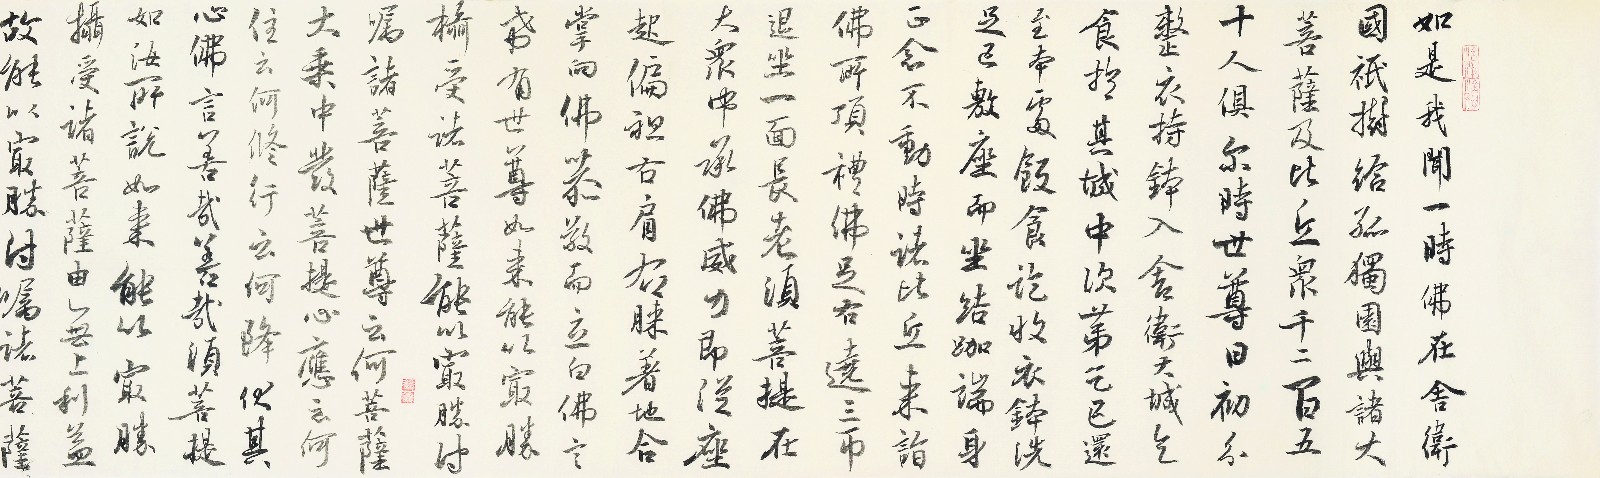 如是我聞一時佛在舍衛
國祇樹給孤獨園與諸大
菩薩及比丘眾千二百五
十人俱尔時世尊日初分
整衣持鉢入舍衛大城乞
食於其城中次第乞已還
至本處飯食訖收衣鉢洗
足已敷座而坐結跏端身
正念不動時諸比丘来詣
佛所頂禮佛足右遶三帀
退坐一面長老須菩提在
大衆中承佛威力即從座
起偏袒右肩右膝著地合
掌向佛恭敬而立白佛言
希有世尊如来能以冣勝
攝受諸菩薩能以冣勝付
嘱諸菩薩世尊云何菩薩
大乘中發菩提心應云何
住云何修行云何降伏其
心佛言善哉善哉須菩提
如汝所說如来能以冣勝
攝受諸菩薩由以無上利益
故能以冣勝付嘱諸菩薩